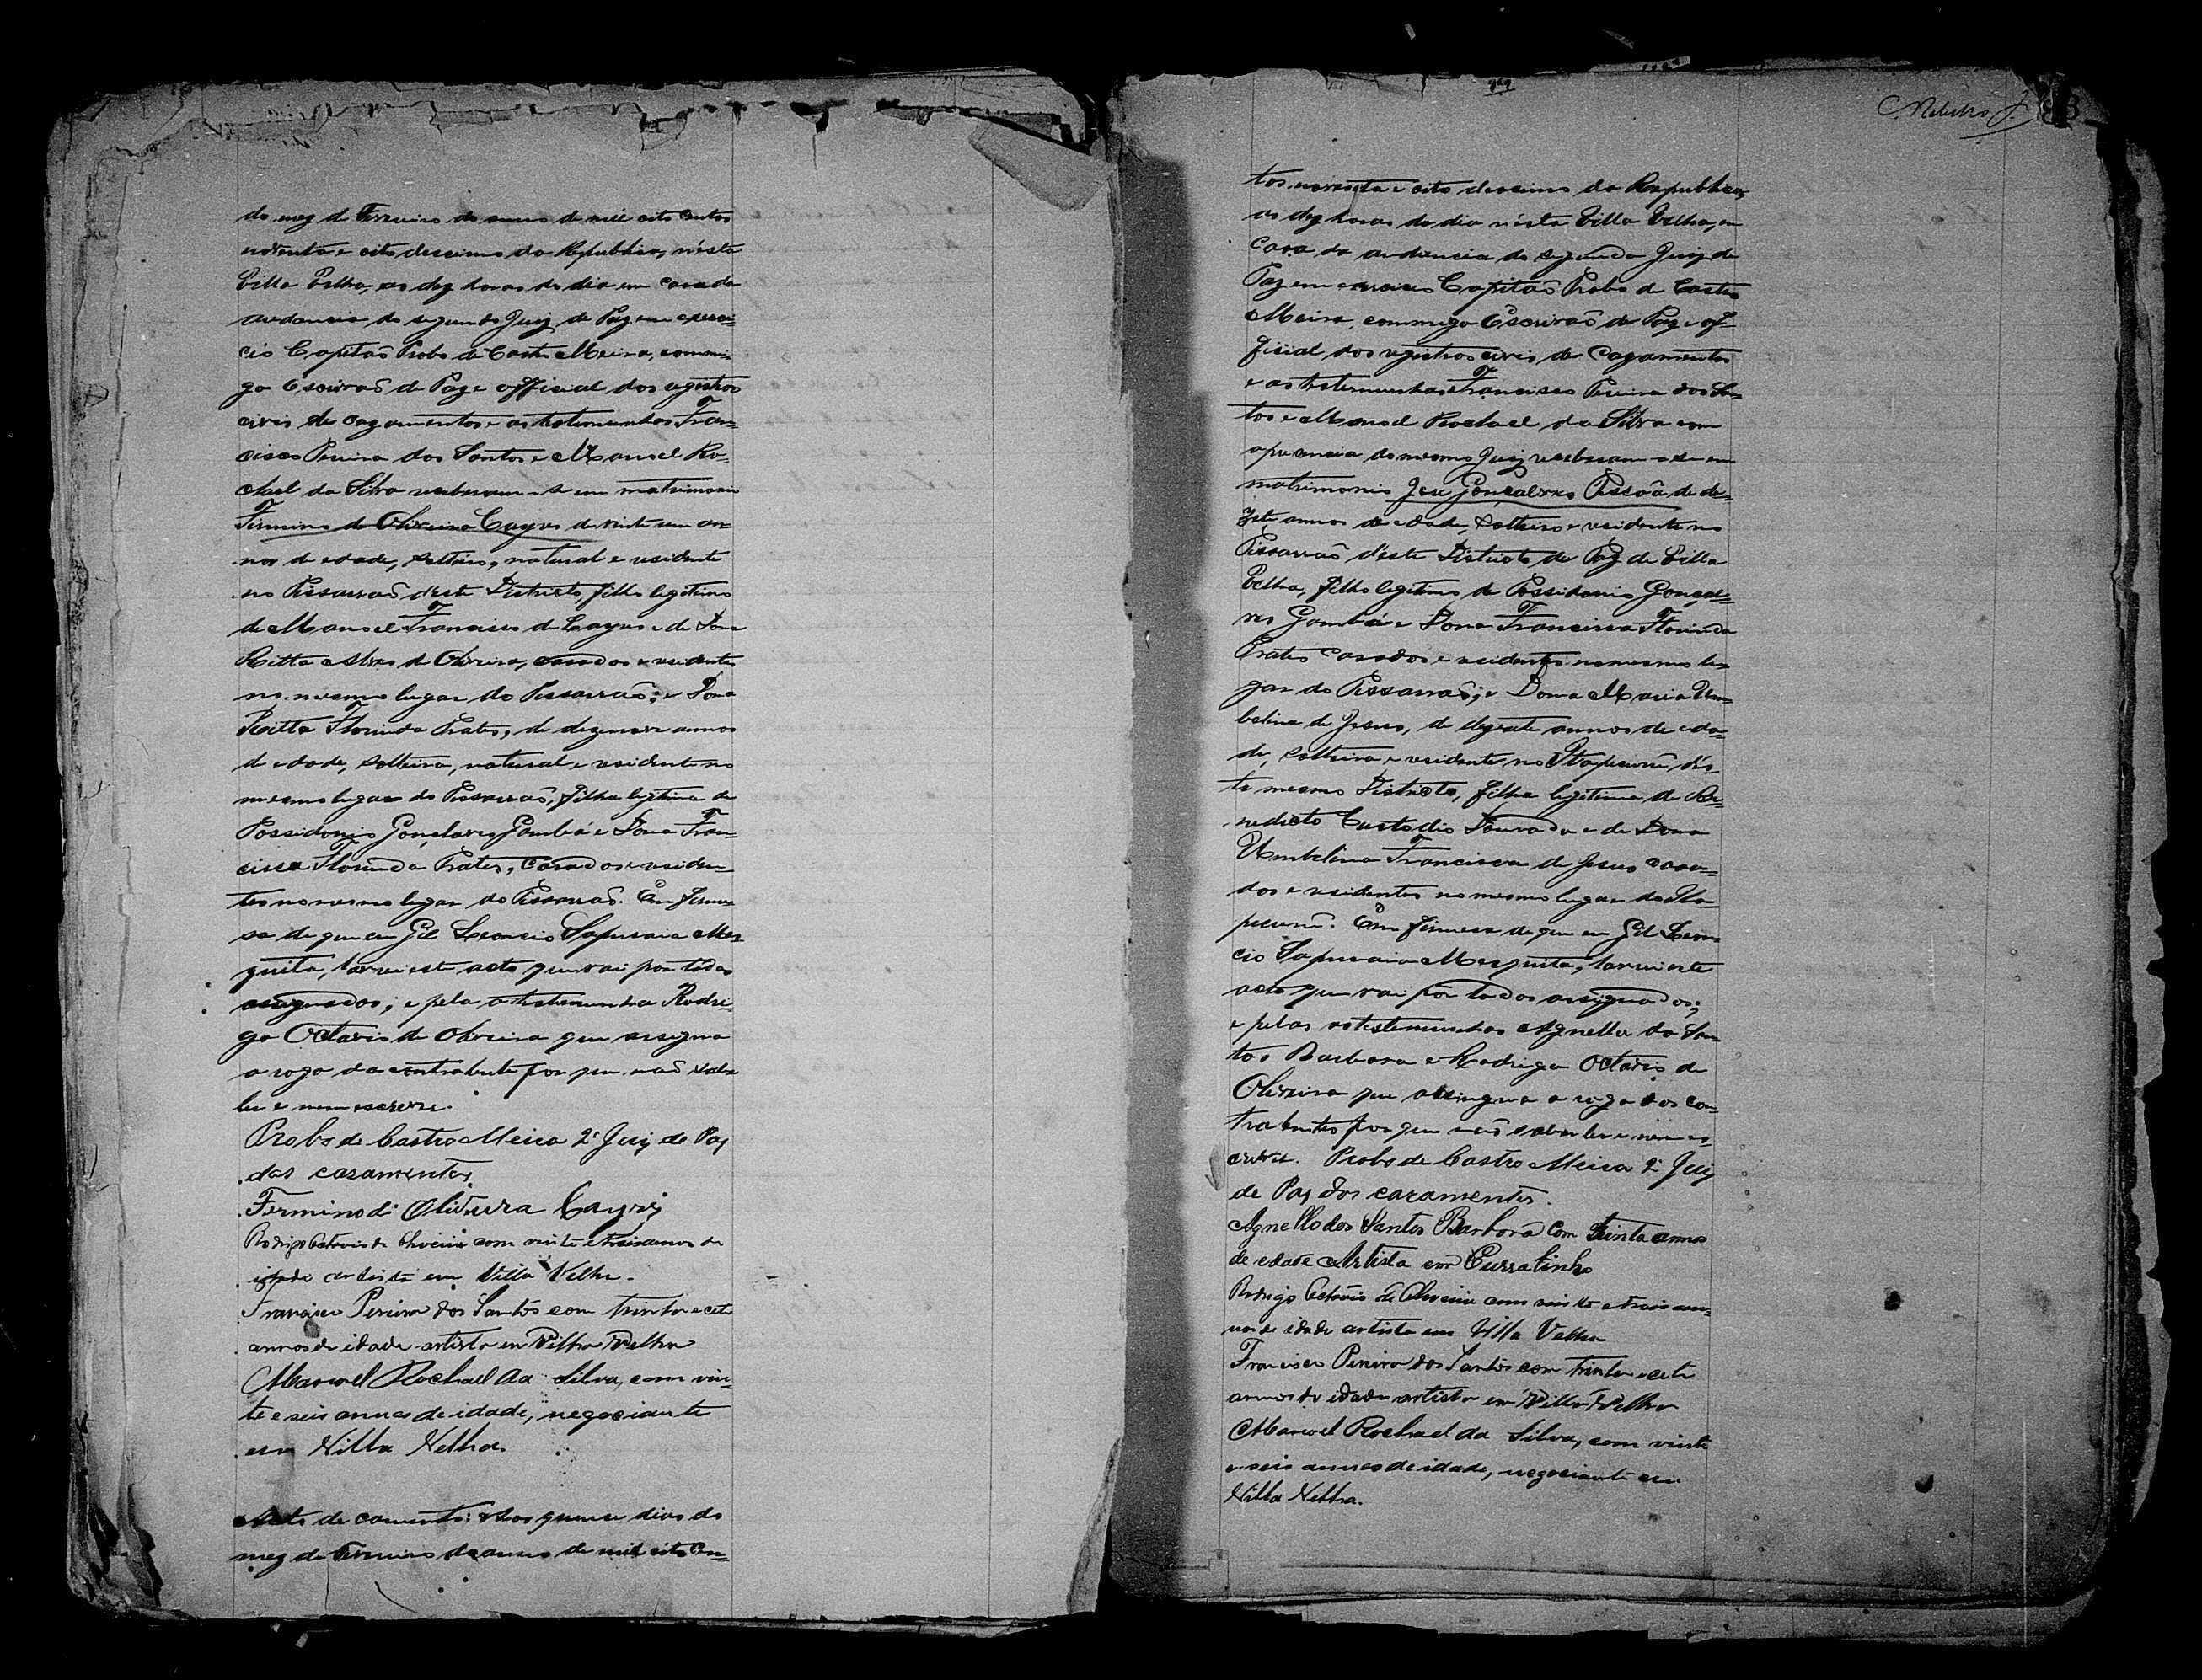 do mez de Fevereiro do anno de mil oito centos
noventa e oito decimo da Republica, nésta
Villa Velha, as dez horas do dia em casa da
audiencia do segundo Juiz de Paz em exerci-
cio Capitaõ Probo de Castro Meira, commi-
go Escrivaõ de Paz e official dos registros
civis de cazamentos e as testemunhas Fran-
cisco Pereira dos Santos e Manoel Ro-
chael da Silva receberam-se em matrimonio
Firmino de Oliveira Cayres de vinte um an-
nos de edade, solteiro, natural e residente
no Pissarraõ d'este Districto, filho legitimo
de Manoel Francisco de Cayres e de Dona
Ritta Alves de Oliveira, casados e residentes
no mesmo lugar do Pissarraõ; e Dona
Ritta Florinda Prates, de dezenove annos
de edade, solteira, natural e residente no
mesmo lugar do Pissarraõ, filha legitima de
Possidonio Gonçlaves Gambá e Dona Fran-
cisca Florinda Prates, casados e residen-
tes no mesmo lugar do Pissarraõ. Em firme-
sa de que eu Gil Leoncio Sapucaia Mes-
quita, lavrei este acto que vai por todos
assignados; e pela a testemunha Rodri-
go Octavio de Oliveira que assigna
a rogo da contrahente por que naõ sabe
ler e nem escrever.
Probo de Castro Meira 2º Juiz de Paz
dos casamentos
Fermino di Oliveira Cayres
Rodrigo Octavio de Oliveira com vinte e treis annos de
idade artista em Villa Velha.
Francisco Pereira dos Santos com trinta e cete
annos de idade artista em Villa Velha
Manoel Rochael da Silva, com vin-
te e seis annos de idade, negociante
em Villa Velha.
Acto de casamento: Aos quinse dias do
mez de Fevereiro do anno de mil oito cen-
C. Ribeiro J.
tos noventa e oito decimo da Republica,
as dez horas do dia nésta Villa Velha, em
casa da audiencia do segundo Juiz de
Paz em exercicio Capitaõ Probo de Castro
Meira, commigo Escrivaõ de Paz e of-
ficial dos registros civis de cazamentos
e as testemunhas Francisco Pereira dos San-
tos e Manoel Rochael da Silva com
a presencia do mesmo Juiz receberam-se em
matrimonio José Gonçalves Pessôa de de-
zete annos de edade, solteiro e residente no
Pissarraõ d'este Districto de Paz de Villa
Velha, filho legitimo de Possidonio Gonçal-
ves Gambá e Dona Francisca Florinda
Prates casados e residentes no mesmo lu-
gar do Pissarraõ; e Dona Maria Um-
belina de Jesus, de dezesete annos de eda-
de, solteira e residente no Itapecurú d'es-
te mesmo Districto, filha legitima de Be-
nedicto Custodio Dourado e de Dona
Umbelina Francisca de Jesus casa-
dos e residentes no mesmo lugar do Ita-
pecurú. Em firmesa de que eu Gil Leon-
cio Sapucaia Mesquita, lavrei este
acto que vai por todos assignados;
e pelas as testemunhas Agnello do San-
tos Barbosa e Rodrigo Octavio de
Oliveira que assingna a rogo dos con-
trahentes por que naõ saber ler e nem es-
crever. Probo de Castro Meira 2º Juiz
de Paz dos casamentos.
Agnello dos Santos Barbosa Com trinta annos
de edade Artista em Curratinho
Rodrigo Octavio de Oliveira com vinte e treis an-
nos de idade artista em Villa Velha
Francisco Pereira dos Santos com trinta e cete
annos de idade artista em Villa Velha
Manoel Rochael da Silva, com vinte
e seis annos de idade, negociante em
Villa Velha.